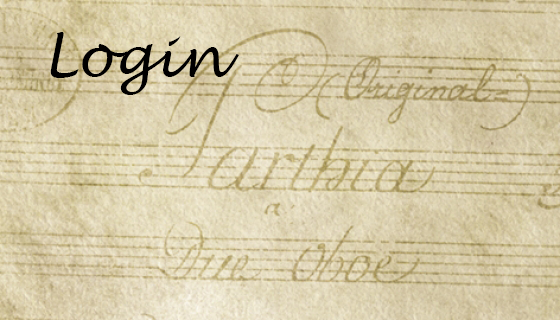 Login
(Original=)
Parthia
a
Due Oboe